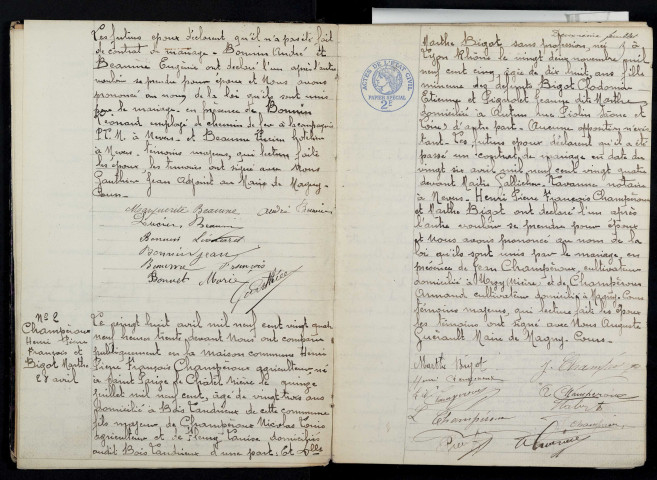 Les futurs époux déclarent qu'il n'a pas été fait
de contrat de mariage - Bonnin André et
Beaume Eugénie ont déclaré l'un après l'autre
vouloir se prendre pour époux et Nous avons
prononcé au nom de la loi qu'ils sont unis
par le mariage. en présence de Bonnin
Léonard employé de chemin de fer à la compagnie
P.L.M. à Nevers et Beaume
à Nevers. témoins majeurs, qui lecture faite
les époux, les témoins ont signé avec Nous
Gauthier Jean Adjoint au Maire de Magny-
Cours
Marguerite Beaume André Bonnin
Lucien Beaume
Bonnin Léonard
Bonnin Jean
François
Bonnet Marie
Gauthier
No 2
Champéroux
Henri Pierre
François et
Bigot Marthe
28 avril
Le vingt huit avril mil neuf cent vingt quatre
neuf heures trente, devant Nous ont comparu
publiquement en la maison commune Henri
Pierre François Champéroux agriculteur, né
à Saint Parize le Châtel Nièvre le quinze
juillet mil neuf cent, âgé de vingt trois ans
domicilié à Bois Tandieux de cette commune
fils majeur de Champéroux Nicolas Louis
agriculteur et de Louise domiciliés
audit Bois Tandieux d'une part : Et
feuillet
Marthe Bigot sans profession, née à
le vingt deux novembre mil
neuf cent cinq, âgée de dix huit ans, fille
mineure des défunts Bigot Clodomir
Etienne et Jeanne dit Marthe
domiciliée à Autun (Saône et
Loire) d'autre part - Aucune opposition n'exis-
tant - Les futurs époux déclarent qu'il a été
passé un contrat de mariage en date du
vingt six avril mil neuf cent vingt quatre
devant Maître Tavanne notaire
à Nevers - Henri Pierre François Champéroux
et Marthe Bigot ont déclaré l'un après
l'autre vouloir se prendre pour époux
et Nous avons prononcé au nom de la
loi qu'ils sont unis par le mariage, en
présence de Jean Champéroux, cultivateur
domicilié à (Nièvre) et de Champéroux
Armand cultivateur domicilié à Magny-Cours
témoins majeurs, qui lecture faite les époux
les témoins ont signé avec Nous Auguste
Guérault Maire de Magny-Cours -
Marthe Bigot
Champeroux
ACTES DE L'ETAT CIVIL
PAPIER SPECIAL
2F